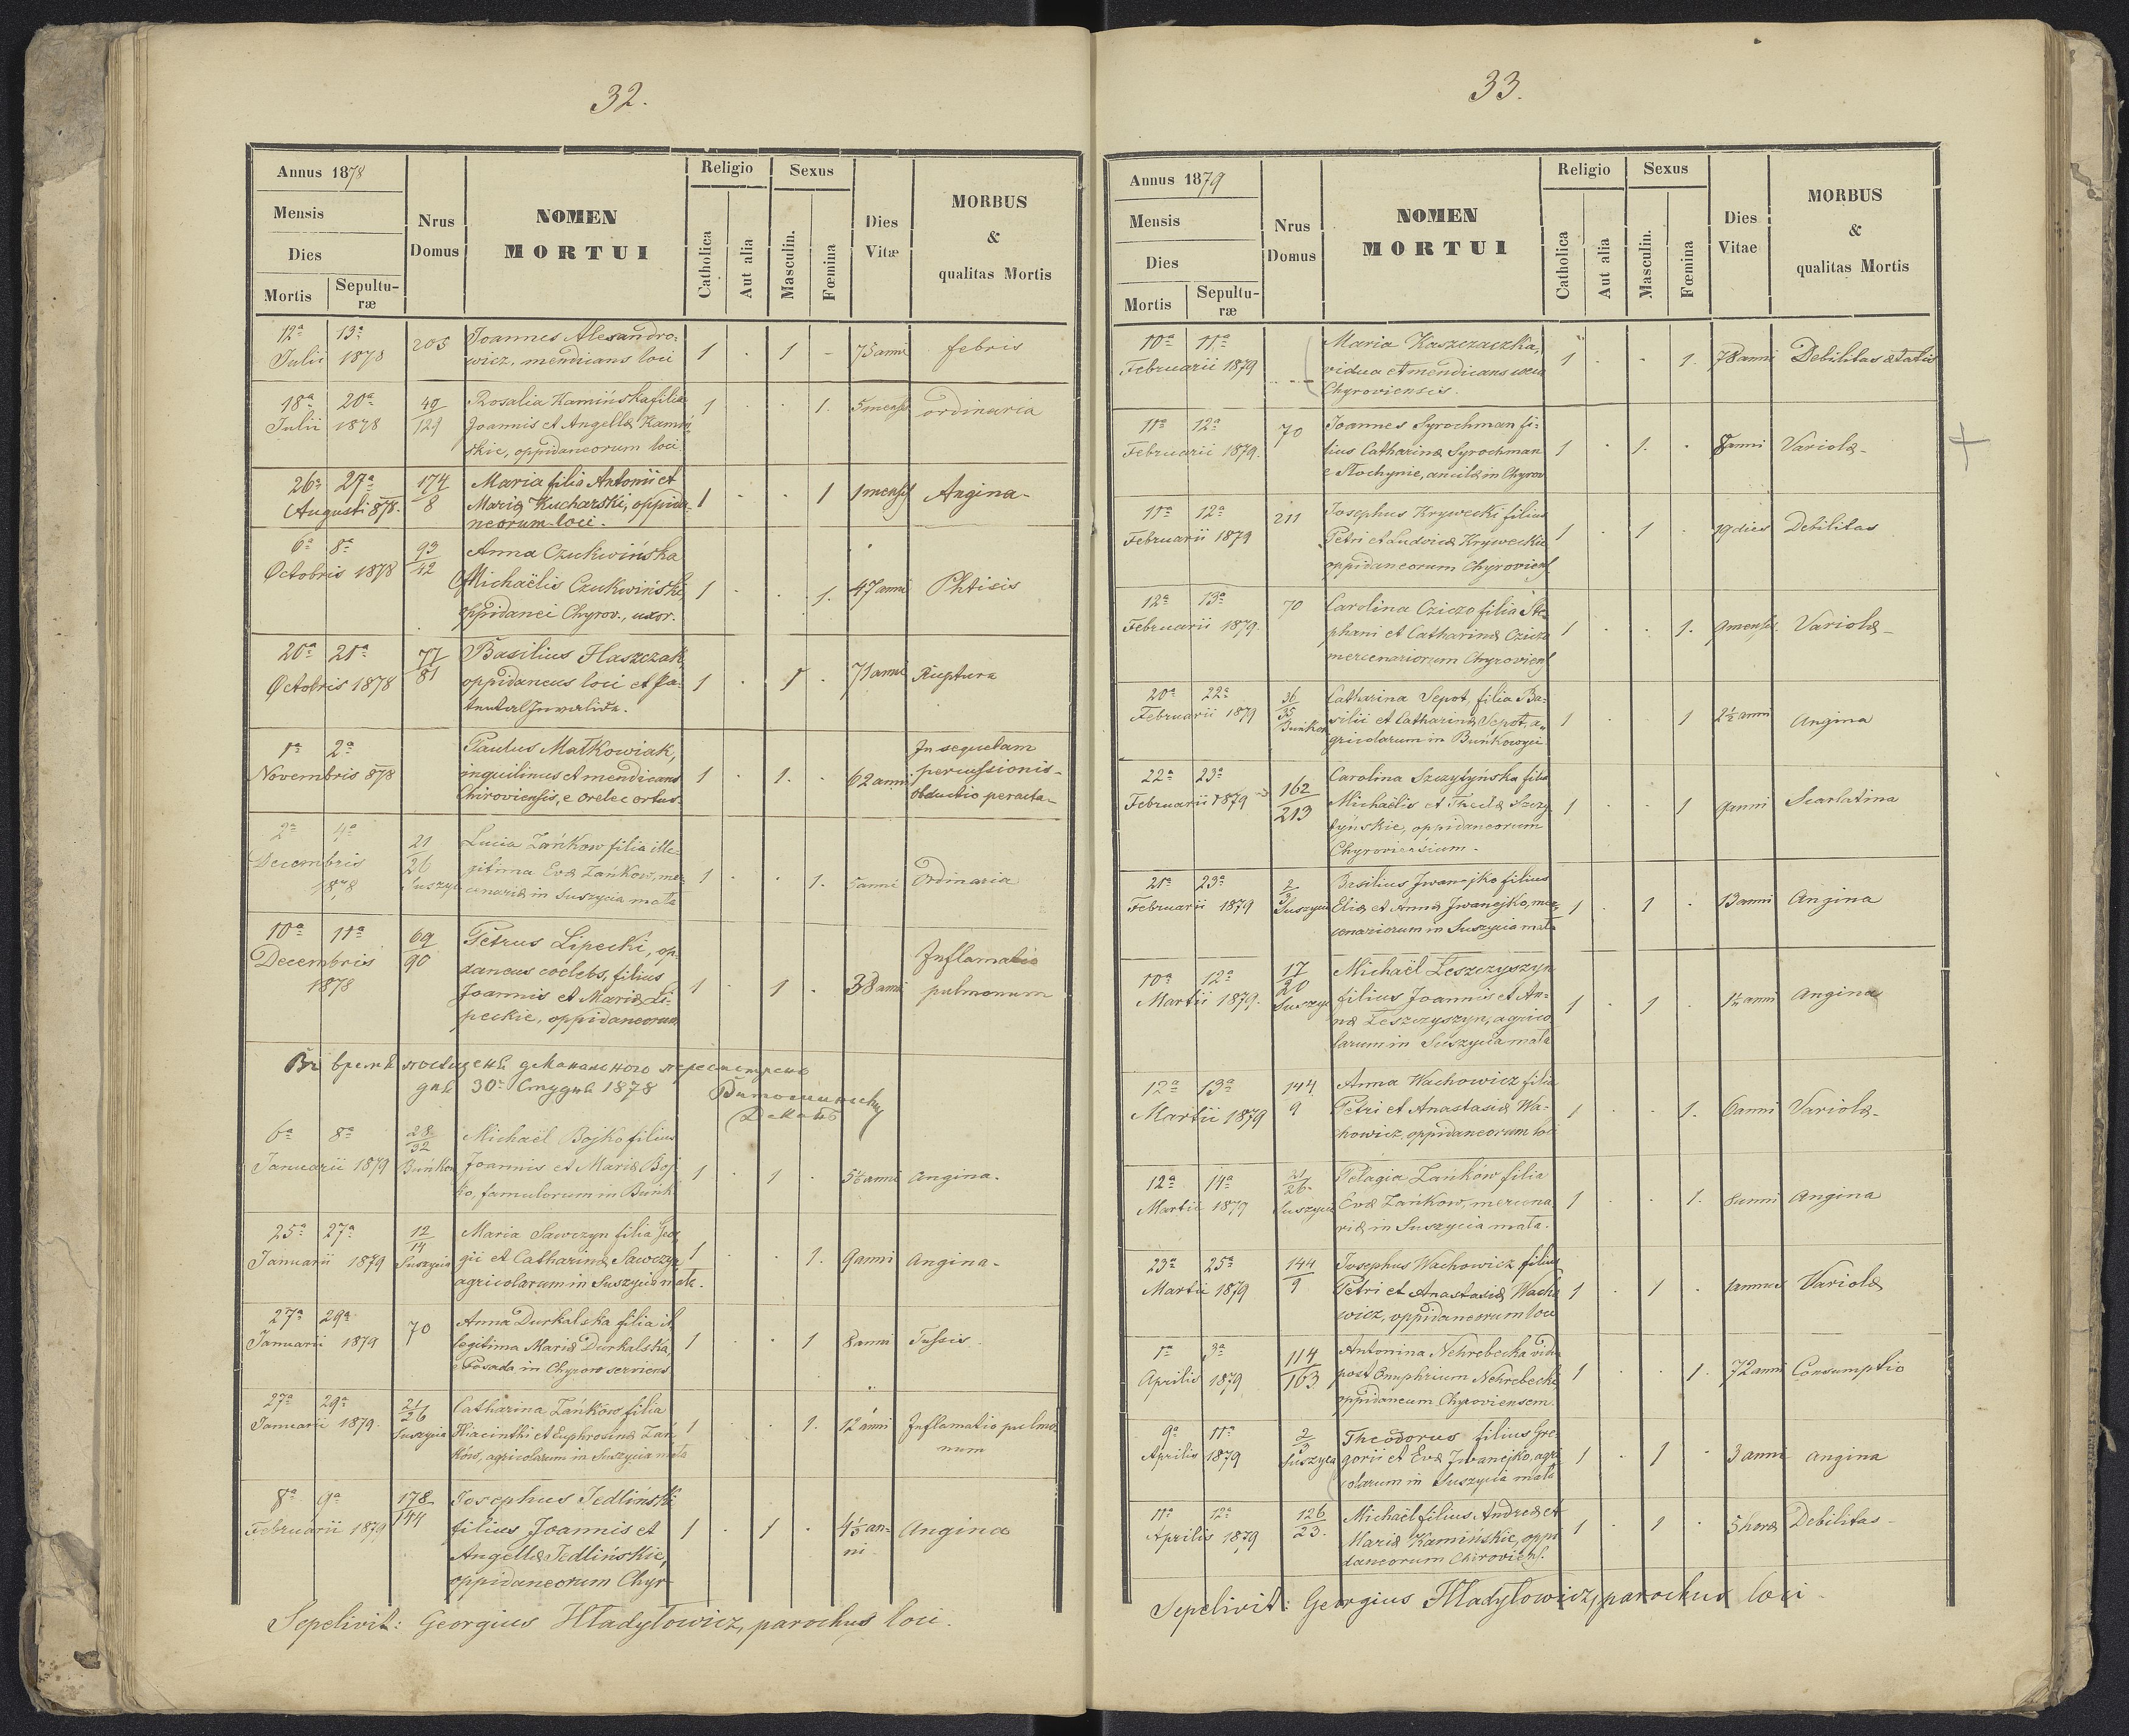 32.
Annus 1878
Mensis
Dies
Mortis
Sepultu-
ræ
Nrus
Domus
NOMEN
MORTUI
Religio
Catholica
Aut alia
Sexus
Masculin.
Fœmina
Dies
Vitæ
MORBUS
&
qualitas Mortis
12ª 13ª
Julii 1878
205
Joannes Alexandro-
wicz, mendicans loci
1 . 1 -
75 anni
febris
18ª 20ª
Julii 1878
40/129
Rosalia Kamińska filia
Joannis et Angellæ Kamiń
skie, oppidaneorum loci
1 . . 1.
5 mensis
ordinaria
26ª 27ª
Augusti 878.
174/8
Maria filia Antonii et
Mariæ Kucharski, oppida-
neorum loci.
1 . . 1
1 mensis
Angina-
6ª 8ª
Octobris 1878
93/42
Anna Czukwińska
Michaëlis Czukwiński
oppidanei Chyrov., uxor.
1 . . 1.
47 anni
Phtisis
20ª 21ª
Octobris 1878
77/81
Basilius Haszczak
oppidaneus loci et Pa-
tental Invalide.
1 . 1 .
71 anni
Ruptura
1ª 2ª
Novembris 878
Paulus Matkowiak,
inquilinus et mendicans
Chiroviensis, e Orelec ortus.
1 . 1. .
62 anni
In sequelam
percussionis-
obductio peracta-
2ª 4ª
Decembris
1878
21/26
Suszyc
Lucia Zańkow filia ille-
gitima Evæ Zańkow, mer-
cenariæ in Suszycia mała
1 . . 1.
5 anni
Ordinaria
10ª 11ª
Decembris
1878
69/90
Petrus Lipecki, op-
daneus coelebs, filius
Joannis et Mariæ Li-
peckie, oppidaneorum
1 . 1 .
38 anni
Inflamatio
pulmonum
30º Студня 1878
6ª 8ª
Januarii 1879
28/32
Buńkow
Michaël Bojko filius
Joannis et Mariæ Boj
ko, famulorum in Buńk
1 . 1 .
5½ anni
Angina.
25ª 27ª
Januarii 1879
12/14
Suszycia
Maria Sawczyn filia Geor
gii et Catharinæ Sawczyn
agricolarum in Suszycia mała.
1 . . 1.
9 anni
Angina-
27ª 29ª
Januarii 1879
70
Anna Durkalska filia il
legitima Mariæ Durkalska,
e Posada in Chyrow serviens
1 . . 1
8 anni
Tussis
27ª 29ª
Januarii 1879.
21/26
Suszycia
Catharina Zańków filia
Hiacinthi et Euphrosinæ Zań
ków, agricolarum in Suszycia mała
1 . . 1.
12 anni
Inflamatio pulmo
num
8ª 9ª
Februarii 1879
178/144
Josephus Jedliński
filius Joannis et
Angellæ Jedlińskie,
oppidaneorum Chyr
1 . 1 .
4½ an-
ni
Angina
Sepelivit: Georgius Hładyłowicz, parochus loci.
33.
Annus 1879
Mensis
Dies
Mortis
Sepultu-
ræ
Nrus
Domus
NOMEN
MORTUI
Religio
Catholica
Aut alia
Sexus
Masculin.
Fœmina
Dies
Vitae
MORBUS
&
qualitas Mortis
10ª 11ª
Februarii 1879
Maria Kaszczaczka,
vidua et mendicans
Chyroviensis.
1 . . 1.
78 anni
Debilitas ætatis
11ª 12ª
Februarii 1879.
70
Joannes Syrochman fi-
lius Catharinæ Syrochman
ancilæ in Chyrow
1 . 1. .
8 anni
Variolæ-
11ª 12ª
Februarii 1879
211
Josephus Krywecki filius
Petri et Ludovicæ Kryweckie
oppidaneorum Chyroviens.
1 . 1 .
19 dies
Debilitas
12ª 13ª
Februarii 1879.
70
Carolina Cziczo filia Ste-
phani et Catharinæ Cziczo
mercenariorum Chyroviens
1 . . 1.
9 mensis
Variolæ-
20ª 22ª
Februarii 1879
36/35
Buńkow
Catharina Sepot, filia Ba-
silii et Catharinæ Sepot, a-
gricolarum in Buńkowyci
1 . . 1
2½ anni
Angina
22ª 23ª
Februarii 1879
162/213
Carolina Szczytyńska filia
Michaëlis et Theclæ Szczy-
tyńskie, oppidaneorum
Chyroviensium.
1 . . 1
9 anni
Scarlatina
21ª 23ª
Februarii 1879
2/3
Suszycia
Basilius Iwanejko filius
Eliæ et Annæ Iwanejko, mer-
cenariorum in Suszycia mała
1 . 1 .
13 anni
Angina
10ª 12ª
Martii 1879.
17/20
Suszyc
Michaël Leszczyszyn
filius Joannis et An-
næ Leszczyszyn, agrico
larum in Suszycia mała
1 . 1 .
1½ anni
Angina
12ª 13ª
Martii 1879
144/9
Anna Wachowicz filia
Petri et Anastasiæ Wa-
chowicz, oppidaneorum loci
1 . . 1.
6 anni
Variolæ-
12ª 14ª
Martii 1879
21/26
Suszycia
Pelagia Zańków filia
Evæ Zańkow, mercena
riæ in Suszycia mała.
1 . . 1.
8 anni
Angina
23ª 25ª
Martii 1879
144/9
Josephus Wachowicz filius
Petri et Anastasiæ Wacho
wicz, oppidaneorum loci
1 . 1 .
1 annus
Variolæ
1ª 3ª
Aprilis 1879
114/163
Antonina Nehrebecka vidua
post Onuphrium Nehrebecki
oppidaneum Chyroviensem.
1 . . 1.
72 anni
Consumptio
9ª 11ª
Aprilis 1879
2/3
Suszyca
Theodorus filius Gre-
gorii et Evæ Iwanejko, agri
colarum in Suszycia mała
1 . 1 .
3 anni
Angina
11ª 12ª
Aprilis 1879
126/23.
Michaël filius Andreæ et
Mariæ Kamińskie, oppi
daneorum Chiroviens.
1 . 1 .
5 horæ
Debilitas-
Sepelivit: Georgius Hładyłowicz, parochus loci